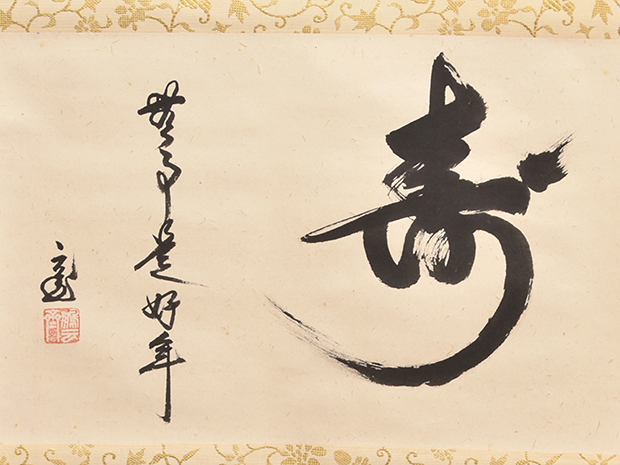 寿
無事是好年